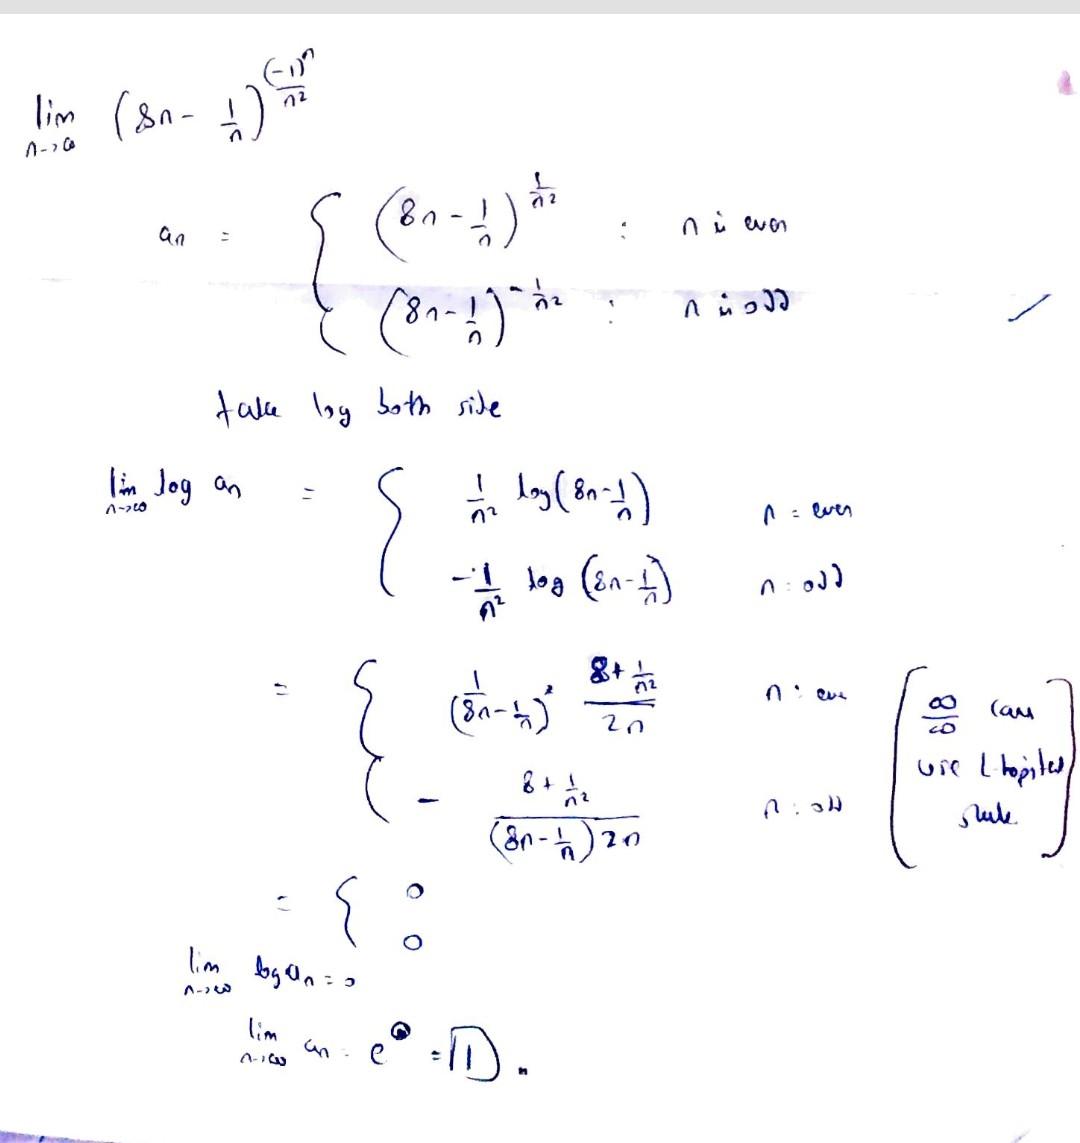 lim n->∞ (8n - 1/n)^((-1)^n/n²)
an = { (8n - 1/n)^(1/n²) : n is even
{ (8n - 1/n)^(-1/n²) : n is odd
take log both side
lim n->∞ log an = { 1/n² log(8n - 1/n) n = even
-1/n² log (8n - 1/n) n : odd
= { 1/(8n - 1/n) · (8 + 1/n²)/2n n : eve
- (8 + 1/n²)/((8n - 1/n) 2n) n : odd
[ ∞/∞ case
use L-hopital
rule ]
= { 0
0
lim n->∞ log an = 0
lim n->∞ an = e^0 = 1.